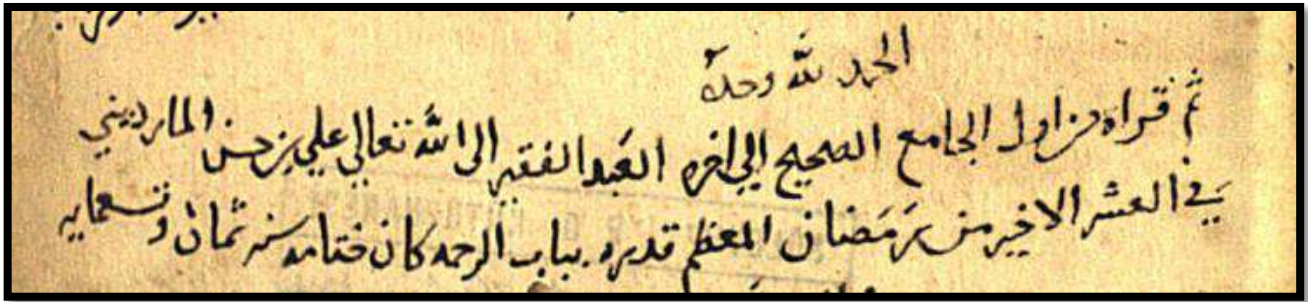 الحمد لله وحده
ثم قراه من اول الجامع الصحيح إلي اخره العبد الفقير الى الله تعالي علي بن حسن المارديني
في العشر الاخير من رمضان المعظم قدره بباب الرحمه كان ختامه سنه ثمان وتسعمايه